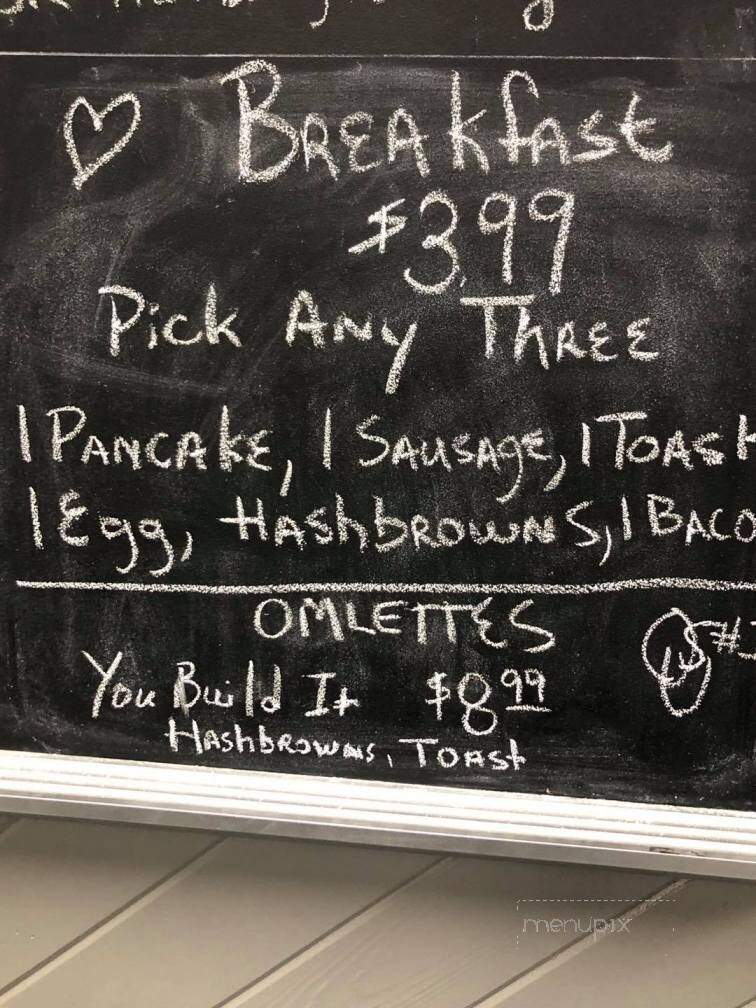 Breakfast
$3.99
Pick Any Three
1 Pancake, 1 Sausage, 1 Toast
1 Egg, Hashbrowns, 1 Baco
OMLETTES
You Build It $8.99
Hashbrowns, Toast
menupix